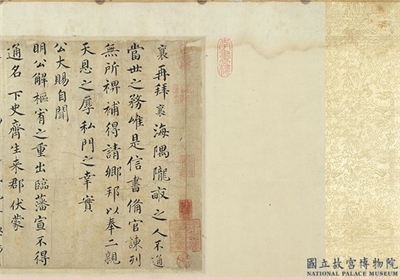 襄再拜襄海隅隴畝之人不通
當世之務唯是信書備官諫列
無所裨補得請鄉邦以奉二親
天恩之厚私門之幸實
公大賜自聞
明公解樞宥之重出臨藩宣不得
通名下史齊生來郡伏蒙
國立故宮博物院
NATIONAL PALACE MUSEUM